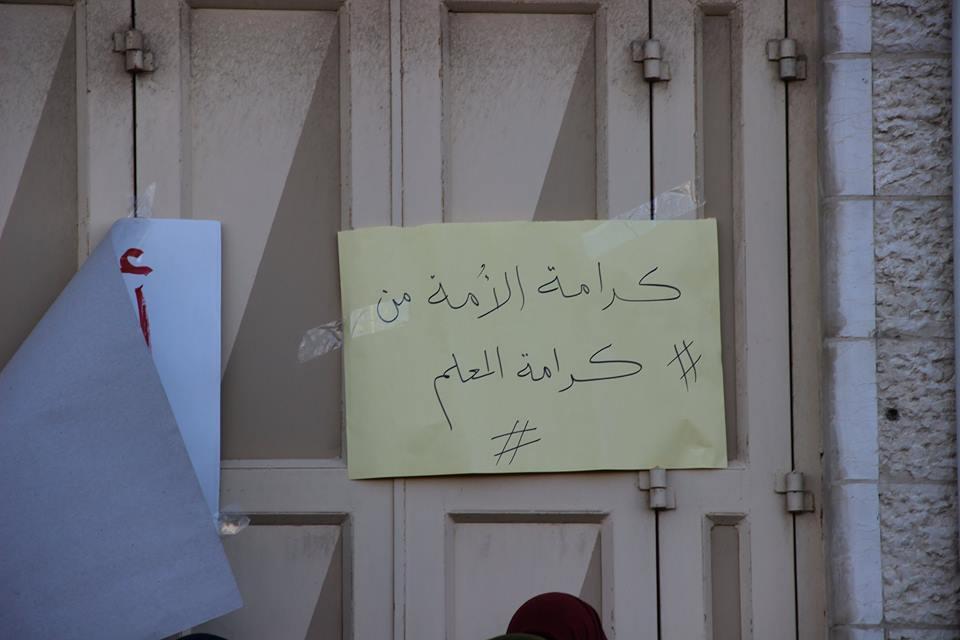 كرامة الأمة من
# كرامة المعلم
#